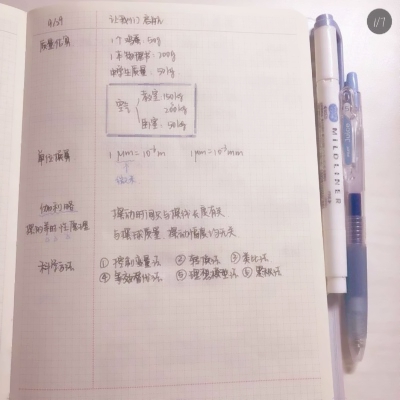 1/7
4/29
质量估算 1个鸡蛋:50g
1本物理书:200g
中学生质量:50kg
空气 教室:150kg
200kg
卧室:50kg
单位换算 1μm=10⁻⁶m 1μm=10⁻³mm
微米
伽利略 摆动时间只与摆线长度有关
摆的等时性原理 与摆球质量、摆动幅度均无关
科学方法 ①控制变量法 ②转换法 ③类比法
④等效替代法 ⑤理想模型法 ⑥累积法
MILDLINER